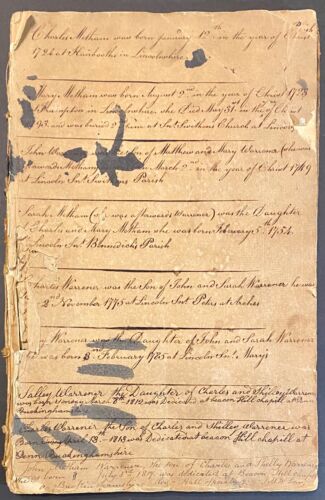 Charles Metham was born January 12th in the year of Christ
1724 at Hainboothe in Lincolnshire
Mary Metham was born August 2nd in the year of Christ 1723
at Hampton in Lincolnshire she Died May 31st in the
93 and was buried at Saint Swithins Church at Lincoln
John Warrener the son of Matthew and Mary Warrener
March 2nd in the year of Christ 1749
at Lincoln Saint Swithins Parish
Sarah Metham (who was afterwards Warrener) was the Daughter
of Charles and Mary Metham she was born February 5th 1754
Lincoln Saint Bennedicts Parish
Charles Warrener was the Son of John and Sarah Warrener he was
2nd November 1775 at Lincoln Snt Peters at Arches
Warrener was the Daughter of John and Sarah Warrener
was born 8 February 1785 at Lincoln Snt Mary's
Salley Warrener the Daughter of Charles and Shelley Warrener
was born March 8th 1812 was Dedicated at beacon Hill chapill at Penn
Buckinghamshire
Charles Warrener the Son of Charles and Shelley Warrener was
Born 13 - 1815 was Dedicated at beacon Hill chapill at
Penn Buckinghamshire
John Metham Warrener the son of Charles and Shelley Warrener
was born July 1817 was dedicated at Beacon